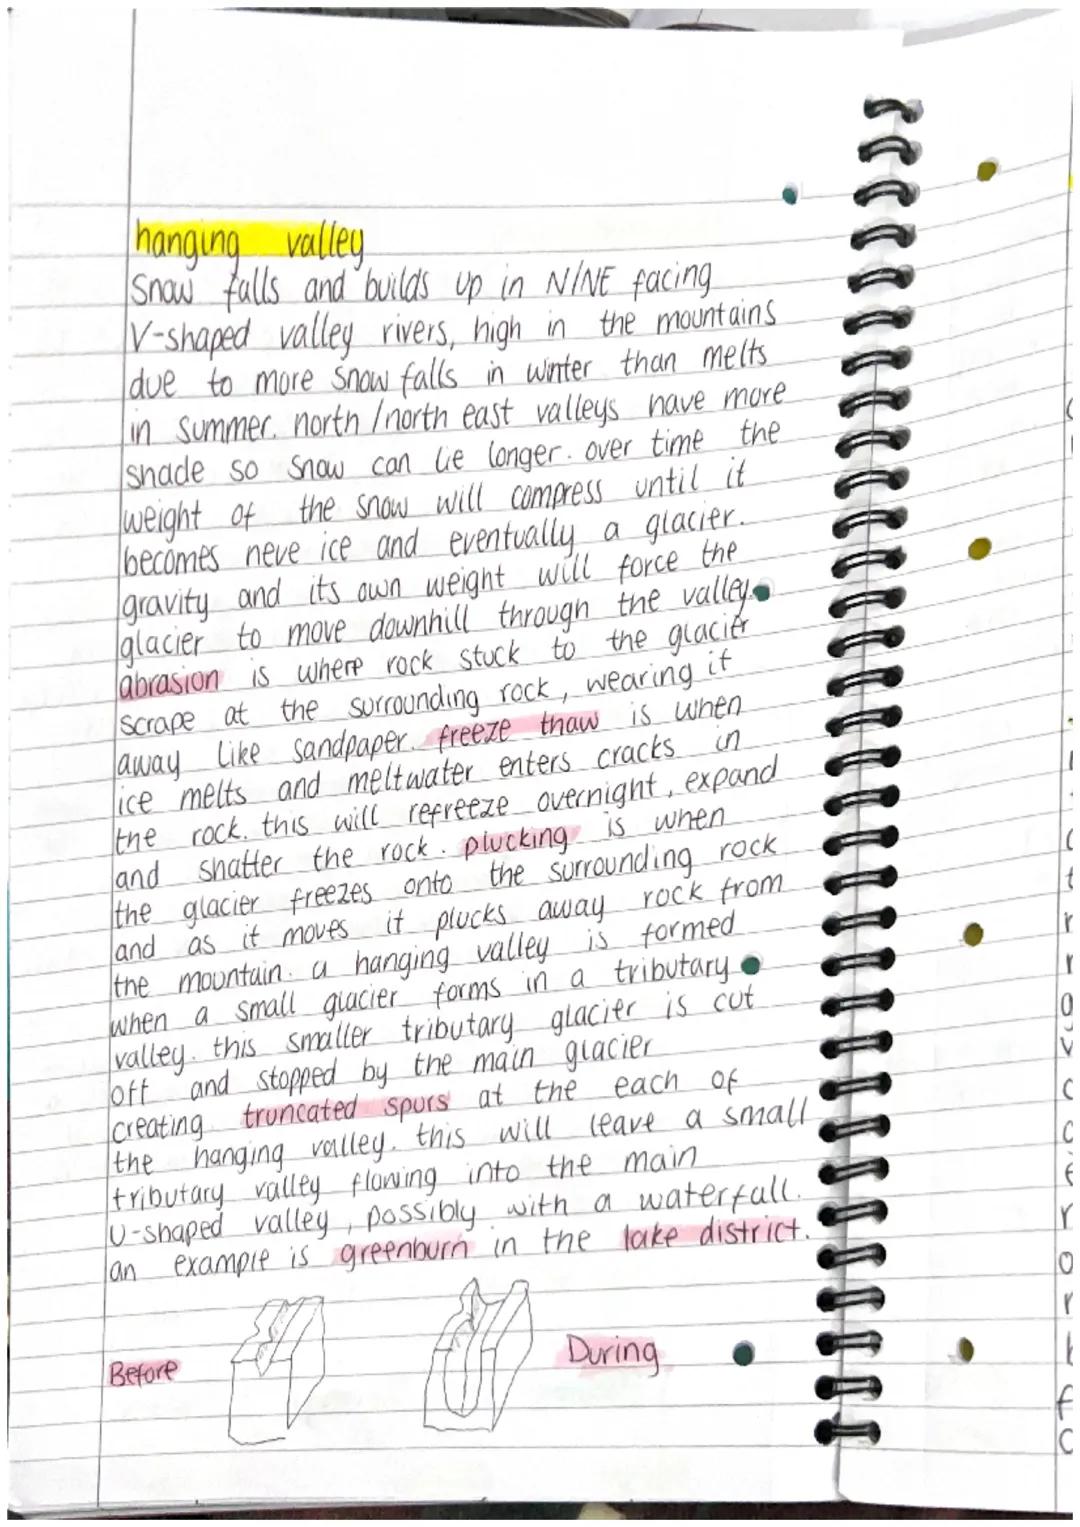 hanging valley
Snow falls and builds up in N/NE facing
V-shaped valley rivers, high in the mountains
due to more snow falls in winter than melts
in summer. north/north east valleys have more
shade so snow can lie longer. over time the
weight of the snow will compress until it
becomes neve ice and eventually a glacier.
gravity and its own weight will force the
glacier to move downhill through the valley.
abrasion is where rock stuck to the glacier
scrape at the surrounding rock, wearing it
away like sandpaper. freeze thaw is when
ice melts and meltwater enters cracks in
the rock. this will refreeze overnight, expand
and shatter the rock. plucking is when
the glacier freezes onto the surrounding rock
and as it moves it plucks away rock from
the mountain. a hanging valley is formed
when a small glacier forms in a tributary
valley. this smaller tributary glacier is cut
off and stopped by the main glacier
creating truncated spurs at the each of
the hanging valley. this will leave a small
tributary valley flowing into the main
U-shaped valley, possibly with a waterfall.
an example is greenburn in the lake district.
Before
During